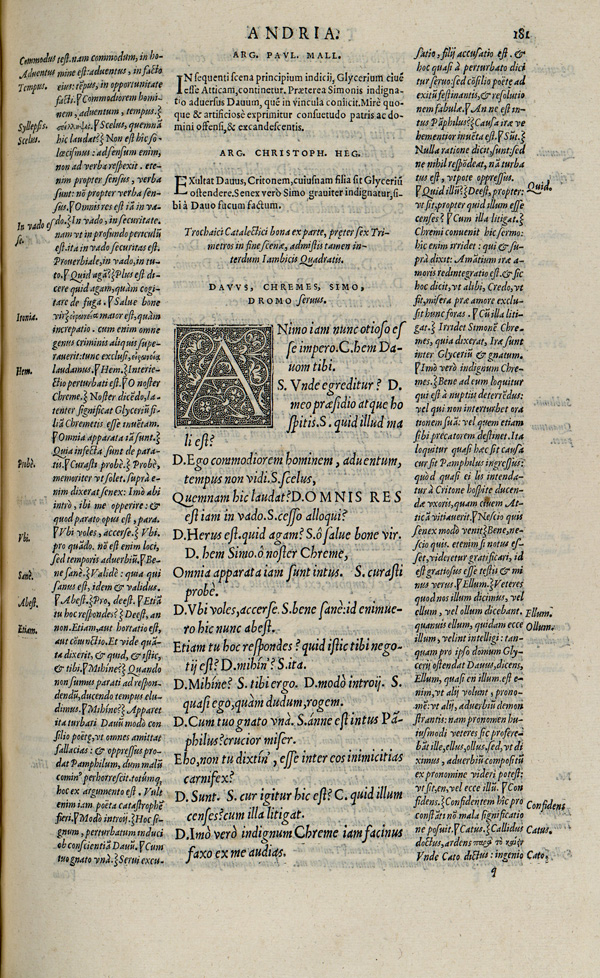 ANDRIA.
181
ARG. PAVL. MALL.
IN sequenti scena principium indicii, Glycerium ciuē
esse Atticam, continetur. Præterea Simonis indigna-
tio aduersus Dauum, quē in vincula coniicit. Mirè quo-
que & artificiosè exprimitur consuetudo patris ac do-
mini offensi, & excandescentis.
ARG. CHRISTOPH. HEG.
EXultat Dauus, Critonem, cuiusnam filia sit Glyceriū
ostendere. Senex verò Simo grauiter indignatur, si-
bi à Dauo fucum factum.
Trochaici Catalectici bona ex parte, preter sex Tri-
metros in fine scenæ, admistis tamen in-
terdum Iambicis Quadratis.
DAVVS, CHREMES, SIMO,
DROMO seruus.
ANimo iam nunc otioso es
se impero. C. hem Da-
uom tibi.
S. Vnde egreditur? D.
meo præsidio atque ho
spitis. S. quid illud ma
li est?
D. Ego commodiorem hominem, aduentum,
tempus non vidi. S. scelus,
Quemnam hic laudat? D. OMNIS RES
est iam in vado. S. cesso alloqui?
D. Herus est. quid agam? S. ô salue bone vir.
D. hem Simo. ô noster Chreme,
Omnia apparata iam sunt intus. S. curasti
probè.
D. Vbi voles, accerse. S. bene sanè: id enimue-
ro hic nunc abest.
Etiam tu hoc respondes? quid istic tibi nego-
tij est? D. mihin'? S. ita.
D. Mihine? S. tibi ergo. D. modò introij. S.
quasi ego, quàm dudum, rogem.
D. Cum tuo gnato vnà. S. anne est intus Pā-
philus? crucior miser.
Eho, non tu dixtin', esse inter eos inimicitias
carnifex?
D. Sunt. S. cur igitur hic est? C. quid illum
censes? cum illa litigat.
D. Imò verò indignum Chreme iam facinus
faxo ex me audias.
Commodus
Aduentus
Tempus.
Syllepsis.
Scelus.
In vado es
se.
Ironia.
Hem.
Probè.
Vbi.
Sanè.
Abest.
Etiam.
est. nam commodum, in ho-
mine est: aduentus, in facto
eius: tēpus, in opportunitate
facti. Commodiorem homi-
nem, aduentum, tempus.
Scelus, quemnā
hic laudat? Non est hic so-
lœcismus: ad sensum enim,
non ad verba respexit. ete-
nim propter sensus, verba
sunt: nō propter verba sen-
sus. Omnis res est iā in va-
do. In vado, in securitate.
nam vt in profundo periculū
est. ita in vado securitas est.
Prouerbiale, in vado, in tu-
to. Quid agā? Plus est di-
cere quid agam, quàm cogi-
tare de fuga. Salue bone
vir. maior est, quàm
increpatio. cum enim omne
genus criminis aliquis supe-
rauerit: tunc exclusi,
laudamus. Hem. Interie-
ctio perturbati est. O noster
Chreme. Noster dicēdo, la-
tenter significat Glyceriū fi-
liā Chremetis esse inuētam.
Omnia apparata iā sunt.
Quia infecta sunt de para-
tu. Curasti probè. Probè,
memoriter vt solet. suprà e-
nim dixerat senex: Imò abi
intrò, ibi me opperire: &
quod parato opus est, para.
Vbi voles, accerse. Vbi.
pro quādo. nō est enim loci,
sed temporis aduerbiū. Be-
ne sanè. Validè: quia qui
sanus est, idem & validus.
Abest. Pro, deest. Etiā
tu hoc respondes? Deest, an
non. Etiam, aut hortatio est,
aut cōiunctio. Et vide quā-
ta dixerit, & quid, & istic,
& tibi. Mihine? Quando
non sumus parati ad respon-
dendū, ducendo tempus elu-
dimus. Mihine? Apparet
ita turbari Dauū modò con
silio poëtę, vt omnes amittat
fallacias: & oppressus pro-
dat Pamphilum, dum malū
comin' perhorrescit. totumq,
hoc ex argumento est. Vult
enim iam poëta catastrophē
fieri. Modò introij. Hoc si-
gnum, perturbatum induci
ob conscientiā Dauū. Cum
tuo gnato vnà. Serui excu-
satio, filij accusatio est. &
hoc quasi à perturbato dici
tur seruo: sed cōsilio poëtę ad
exitū festinantis, & resolutio
nem fabulæ. An ne est in-
tus Pāphilus? Causa iræ ve
hementior inuēta est. Sūt.
Nulla ratione dicit, sunt. sed
ne nihil respōdeat, nā turba
tus est, vtpote oppressus.
Quid illū? Deest, propter:
vt sit, propter quid illum esse
censes? Cum illa litigat.
Chremi conuenit hic sermo:
hic enim irridet: qui & su-
prà dixit: Amātium iræ a-
moris redintegratio est. & sic
hoc dicit, vt alibi, Credo, vt
fit, misera præ amore exclu-
sit hunc foras. Cū illa liti-
gat. Irridet Simonē Chre-
mes, quia dixerat, Ira sunt
inter Glyceriū & gnatum.
Imò verò indignum Chre-
mes. Bene ad eum loquitur
qui est à nuptiis deterrēdus:
vel qui non interturbet ora
tionem suā: vel quem etiam
sibi precatorem destinet. Ita
loquitur quasi hæc sit causa
cur sit Pamphilus ingressus:
quòd quasi ei lis intenda-
tur à Critone hospite ducen-
dæ vxoris, quam ciuem At-
ticā vitiauerit. Nescio qui
senex modò venit. Bene, ne-
scio quis. etenim si notus es-
set, videretur gratificari, id
est gratiosus esse testis & mi
nus verus. Ellum. Veteres
quod nos illum dicimus, vel
ellum, vel ollum dicebant.
quanuis ellum, quidam ecce
illum, velint intelligi: tan-
quam pro ipso domum Gly-
cerij ostendat Dauus, dicens,
Ellum, quasi en illum. est e-
nim, vt alij volunt, prono-
mē: vt alij, aduerbiū demon
strantis: nam pronomen hu-
iusmodi veteres sic profere-
bāt ille, ellus, ollus, sed, vt di
ximus, aduerbiū compositū
ex pronomine videri potest:
vt sit, en, vel ecce illū. Con
fidens. Confidentem hic pro
constāti nō mala significatio
ne posuit. Catus. Callidus
doctus, ardens
Vnde Cato dictus: ingenio
Quid.
Ellum.
Ollum.
Confidens
Catus.
Cato.
q